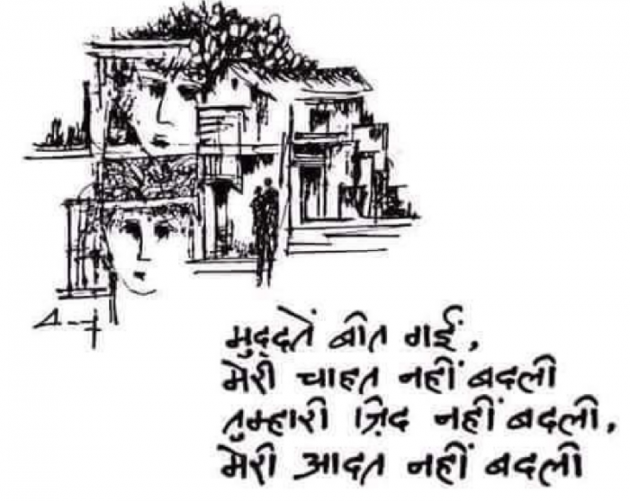 मुद्दतें बीत गईं,
मेरी चाहत नहीं बदली
तुम्हारी ज़िद नहीं बदली,
मेरी आदत नहीं बदली